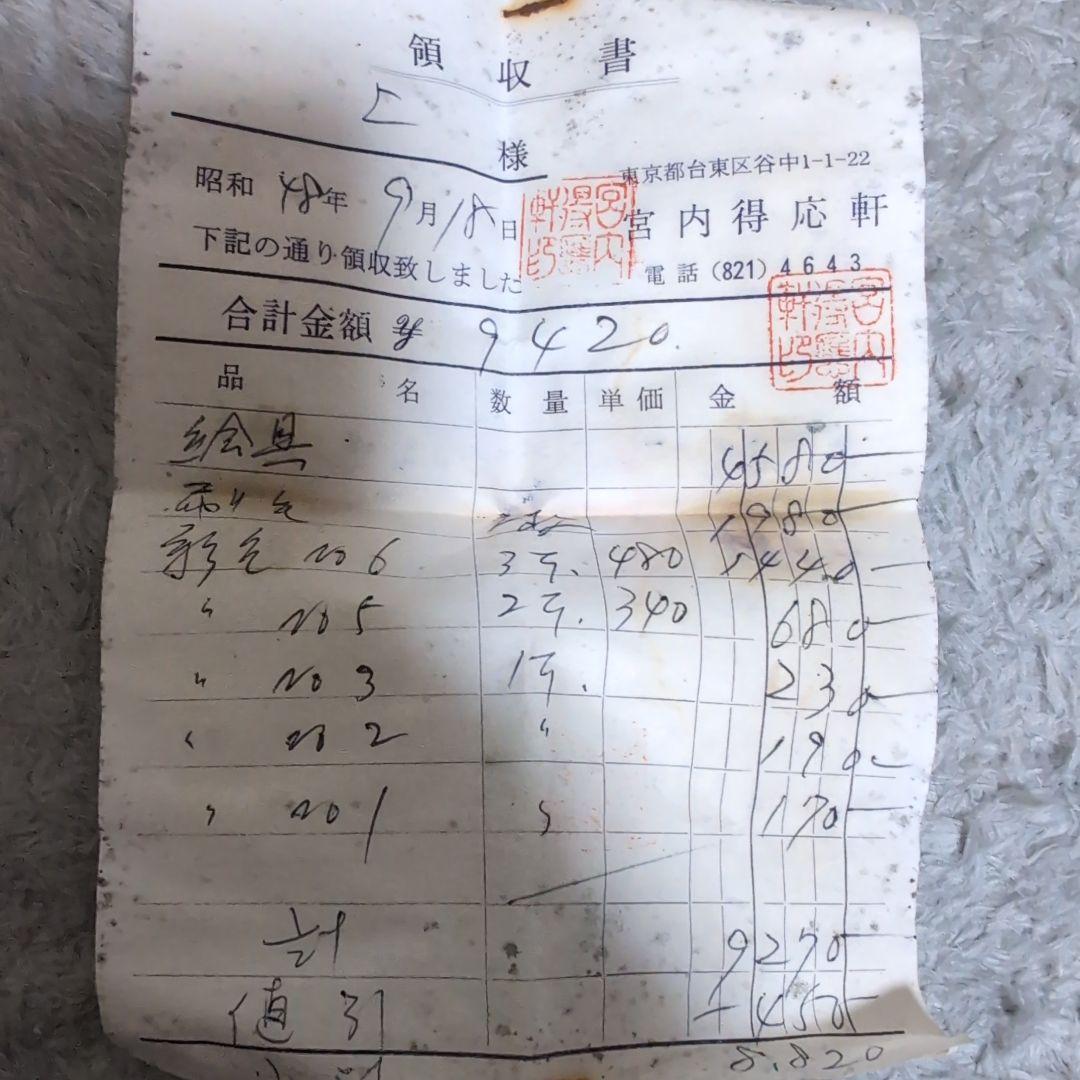 領収書
上
様
東京都台東区谷中1-1-22
昭和 48年 9月18日
宮内得応軒
下記の通り領収致しました
電話 (821) 4643
宮内得應軒印
合計金額 ¥ 9420.
宮内得應軒印
品名 数量 単価 金額
絵具 4580
1980
No 6 3本. 480 1440
〃 No 5 2本. 340 680
〃 No 3 1本. 230
〃 No 2 〃 190
〃 No 1 〃 170
計 9270
値引 450
8.820